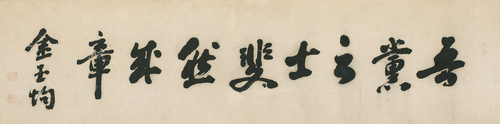 吾黨之士斐然成章
金玉均